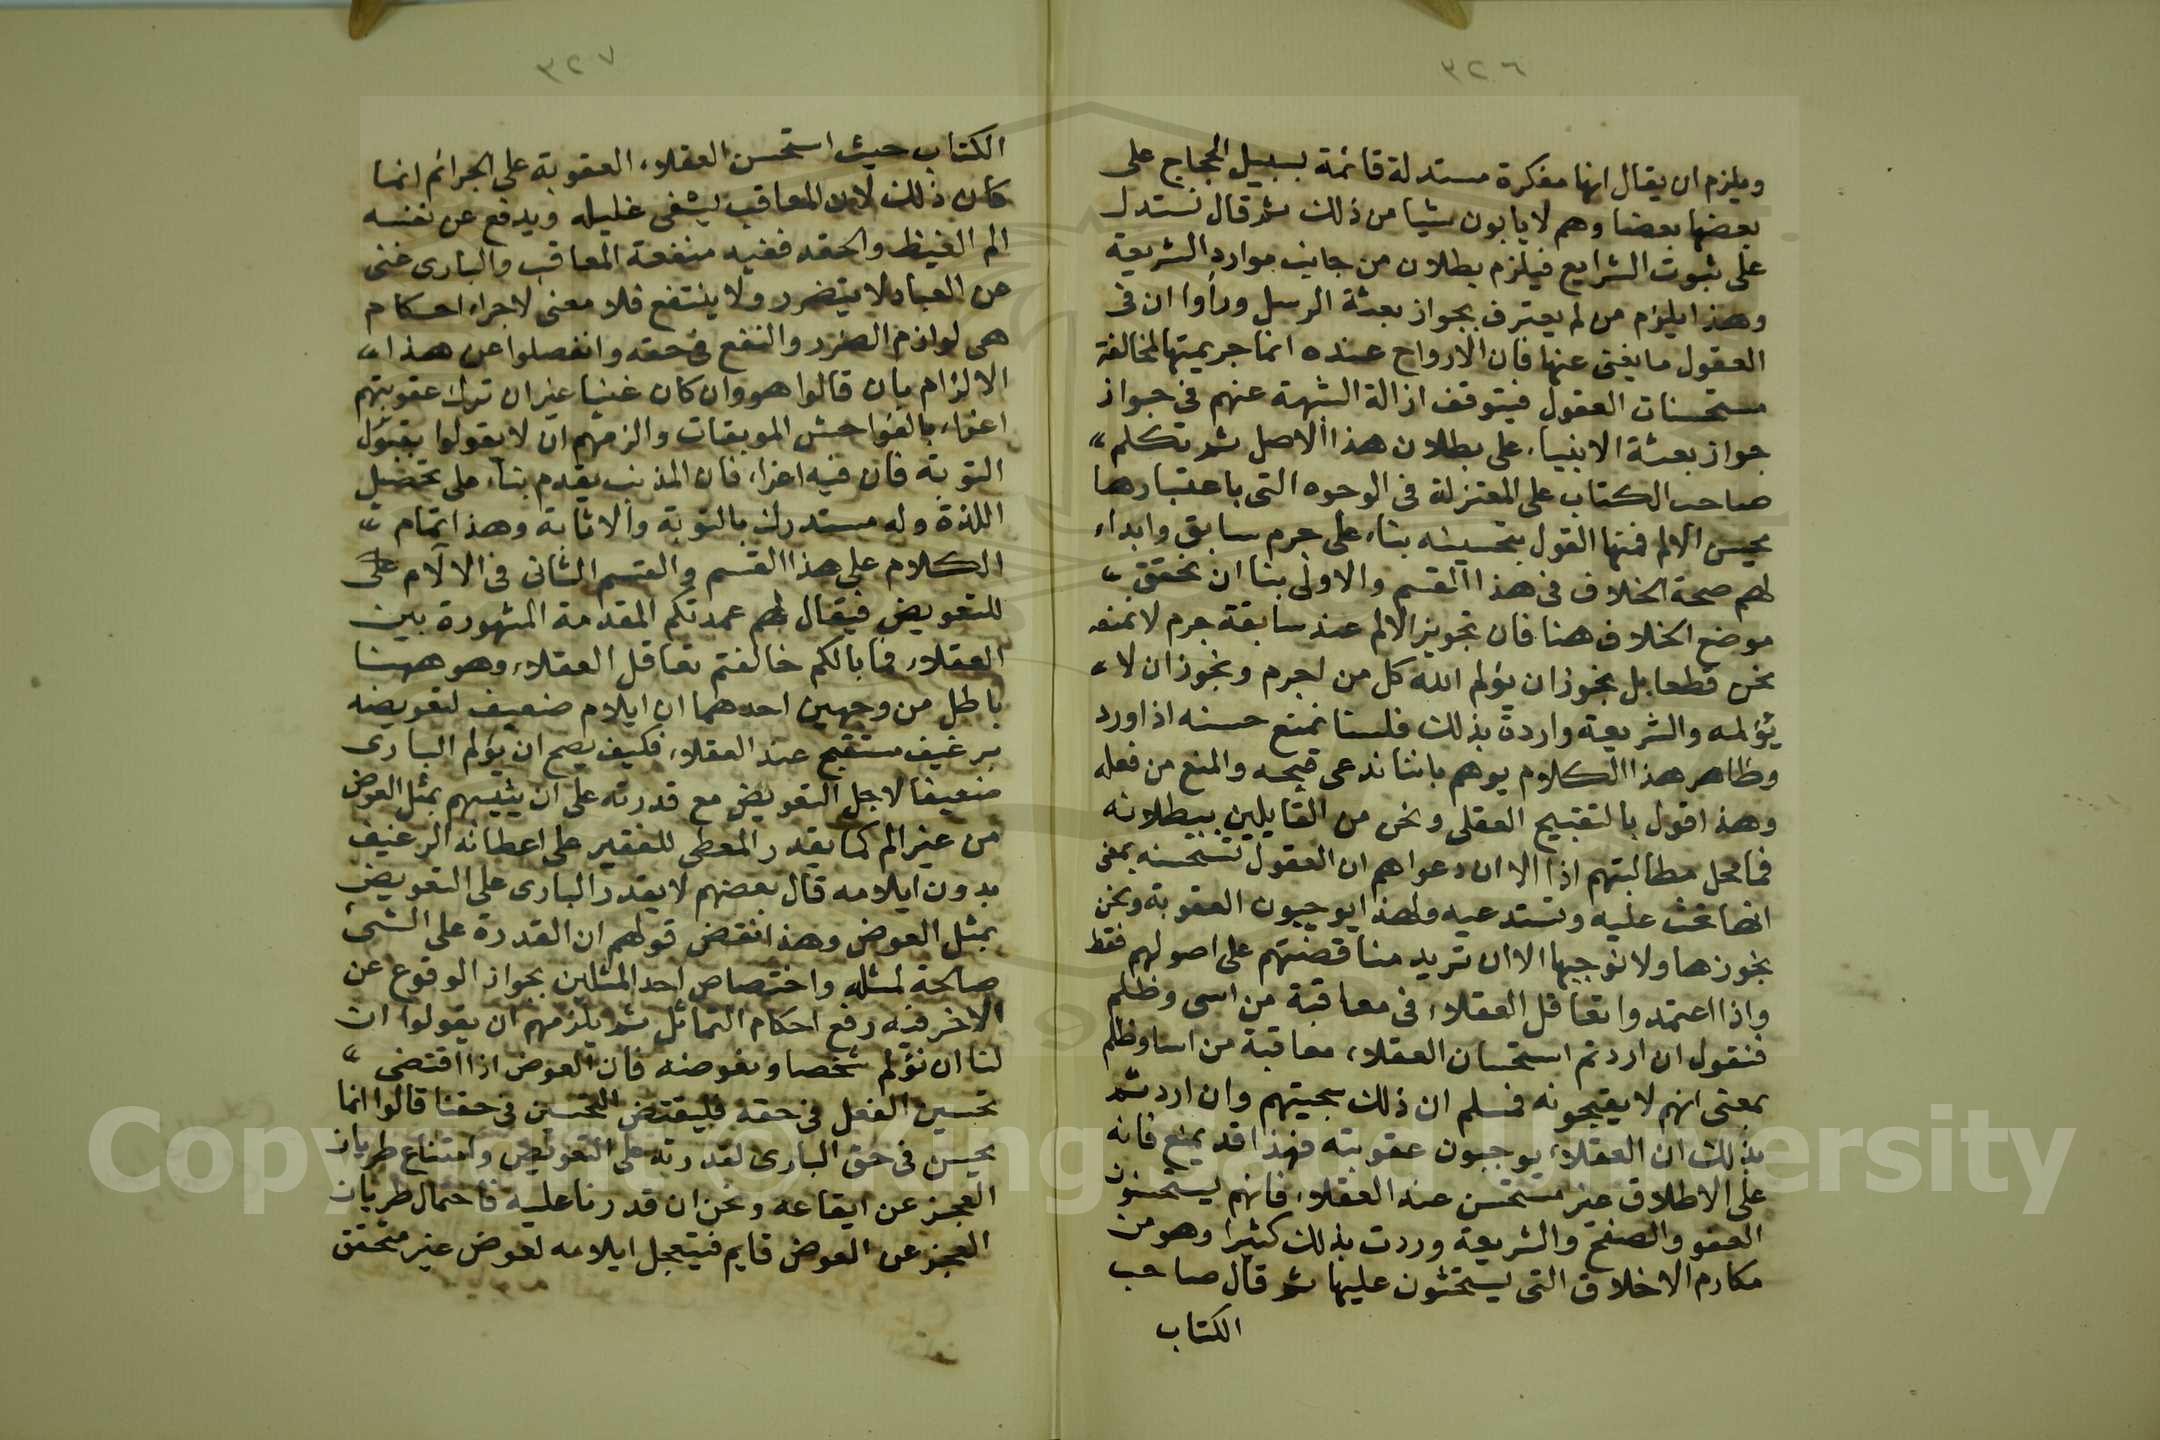 ٣٢٦
ويلزم ان يقال انها مفكرة مستدلة قائمة بسبيل الحجاج على
بعضها بعضا وهم لا يابون شيا من ذلك ثم قال نستدل
على ثبوت الشرايع فيلزم بطلان من جانب موارد الشريعة
وهذا يلزم من لم يعترف بجواز بعثة الرسل وراوا ان في
العقول ما يغنى عنها فان الارواح عنده انما جريمتها لمخالفة
مستحسنات العقول فيتوقف ازالة الشبهة عنهم في جواز
جواز بعثة الانبياء على بطلان هذا الاصل ثم تكلم
صاحب الكتاب على المعتزلة في الوجوه التى باعتبارها
يحسن الالم فمنها القول بتحسينه بناء على جرم سابق وابداء
لهم صحة الخلاف في هذا القسم والاولى بنا ان نحقق
موضع الخلاف هنا فان تجويز الالم عند سابقة جرم لا نمنعه
نحن قطعا بل نجوز ان يؤلم الله كل من اجرم ونجوز ان لا
يؤلمه والشريعة واردة بذلك فلسنا نمنع حسنه اذا ورد
وظاهر هذا الكلام يوهم باننا ندعى قبحه والمنع من فعله
وهذا قول بالتقبيح العقلى ونحن من القايلين ببطلانه
فما محل مطالبتهم اذا الا ان دعواهم ان العقول تستحسنه بمعنى
انها تحث عليه وتستدعيه ولهذا يوجبون العقوبة ونحن
نجوزها ولا نوجبها الا ان نريد مناقضتهم على اصولهم فقط
واذا اعتمدوا تعاقل العقلاء في معاقبة من اسى وظلم
فنقول ان اردتم استحسان العقلاء معاقبة من اسا وظلم
بمعنى انهم لا يقبحونه فمسلم ان ذلك سجيتهم وان اردتم
بذلك ان العقلاء يوجبون عقوبته فهذا قد يمنع فانه
على الاطلاق غير مستحسن عند العقلاء فانهم يستحسنون
العفو والصفح والشريعة وردت بذلك كثيرا وهو من
مكارم الاخلاق التى يستحثون عليها ثم قال صاحب
الكتاب
٣٢٧
الكتاب حيث استحسن العقلاء العقوبة على الجرائم انما
كان ذلك لان المعاقب يشفى غليله ويدفع عن نفسه
الم الغيظ والحقد ففيه منفعة المعاقب والبارى غنى
عن العباد لا يتضرر ولا ينتفع فلا معنى لاجراء احكام
هى لوازم الضرر والنفع في حقه وانفصلوا عن هذا
الالزام بان قالوا هو وان كان غنيا غير ان ترك عقوبتهم
اغراء بالفواحش الموبقات والزمتهم ان لا يقولوا بقبول
التوبة فان فيه اغراء فان المذنب يقدم بناء على تحصيل
اللذة وله مستدرك بالتوبة والاثابة وهذا تمام
الكلام على هذا القسم والقسم الثانى في الالام على
للتعويض فيقال لهم عمدتكم المقدمة المشهورة بين
العقلاء فما بالكم خالفتم تعاقل العقلاء وهو ههنا
باطل من وجهين احدهما ان ايلام ضعيف لتعويضه
برغيف مستقبح عند العقلاء فكيف يصح ان يؤلم البارى
ضعيفا لاجل التعويض مع قدرته على ان يثيبهم بمثل العوض
من غير الم كما يقدر المعطى للفقير على اعطائه الرغيف
بدون ايلامه قال بعضهم لا يقدر البارى على التعويض
بمثل العوض وهذا نقض قولهم ان القدرة على الشئ
صالحة لمثله واختصاص احد المثلين بجواز الوقوع عن
الاخر فيه رفع احكام التماثل ثم يلزمهم ان يقولوا ان
لنا ان نؤلم شخصا ونعوضه فان العوض اذا اقتضى
تحسين الفعل في حقه فليقتض التحسين في حقنا قالوا انما
يحسن في حق البارى لقدرته على التعويض وامتناع طريان
العجز عن ايقاعه ونحن ان قدرنا عليه فاحتمال طريان
العجز عن العوض قايم فيتعجل ايلامه لعوض غير متحقق
Copyright © King Saud University